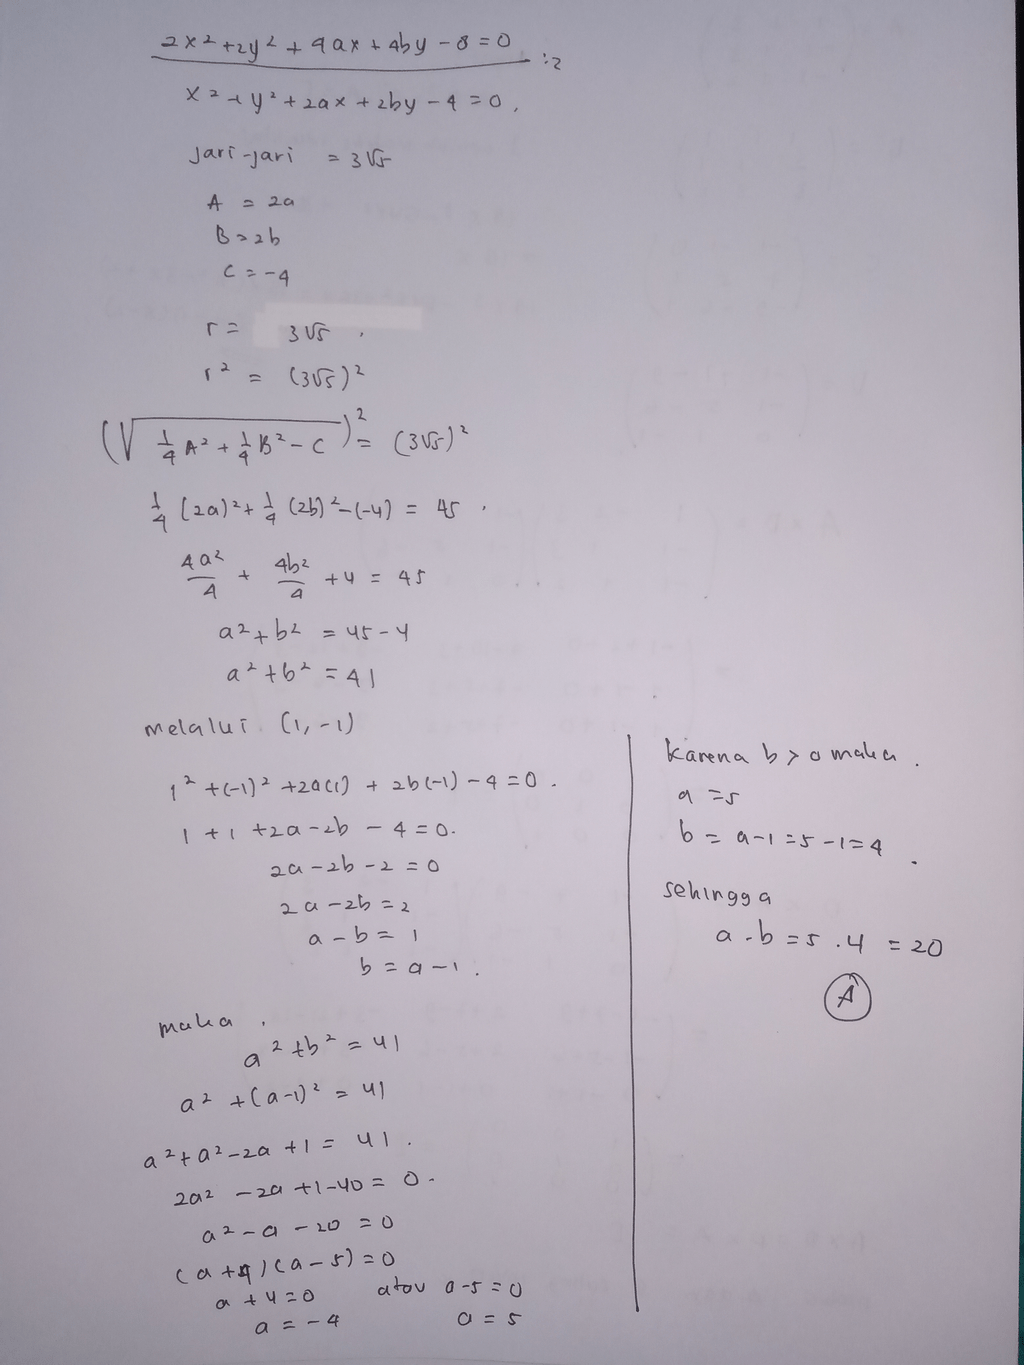 2x² + 2y² + 4ax + 4by - 8 = 0 :2
x² + y² + 2ax + 2by - 4 = 0.
Jari-jari = 3√5
A = 2a
B = 2b
C = -4
r = 3√5.
r² = (3√5)²
(√(1/4 A² + 1/4 B² - C))² = (3√5)²
1/4 (2a)² + 1/4 (2b)² - (-4) = 45.
4a²/4 + 4b²/4 + 4 = 45
a² + b² = 45 - 4
a² + b² = 41
melalui (1, -1)
1² + (-1)² + 2a(1) + 2b(-1) - 4 = 0.
1 + 1 + 2a - 2b - 4 = 0.
2a - 2b - 2 = 0
2a - 2b = 2
a - b = 1
b = a - 1.
maka,
a² + b² = 41
a² + (a-1)² = 41
a² + a² - 2a + 1 = 41.
2a² - 2a + 1 - 40 = 0.
a² - a - 20 = 0
(a + 4)(a - 5) = 0
a + 4 = 0 atau a - 5 = 0
a = -4 a = 5
karena b > 0 maka.
a = 5
b = a - 1 = 5 - 1 = 4.
sehingga
a . b = 5 . 4 = 20
A